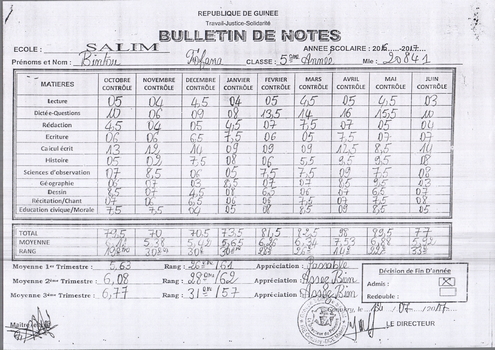 REPUBLIQUE DE GUINEE
Travail-Justice-Solidarité
BULLETIN DE NOTES
ECOLE : SALIM ANNEE SCOLAIRE : 2016 -2017
Prénoms et Nom : Bintou Fofana CLASSE : 5ème Année Mle : 20841
MATIERES OCTOBRE CONTRÔLE NOVEMBRE CONTRÔLE DECEMBRE CONTRÔLE JANVIER CONTRÔLE FEVRIER CONTRÔLE MARS CONTRÔLE AVRIL CONTRÔLE MAI CONTRÔLE JUIN CONTRÔLE
Lecture 05 04 4,5 04 05 4,5 05 4,5 03
Dictée-Questions 10 06 09 08 13,5 14 16 15,5 10
Rédaction 4,5 04 05 4,5 07 7,5 07 05 04
Ecriture 06 06 7,5 06 05 7,5 07
Calcul écrit 13 12 14 09 09 09 12,5 8,5 14
Histoire 05 02 7,5 08 06 5,5 9,5 9,5 08
Sciences d'observation 07 8,5 06 05 7,5 7,5 09 7,5 08
Géographie 06 07 03 8,5 07 07 8,5 03
Dessin 8,5 07 4,5 08 6,5 06 07 6,5 07
Récitation/Chant 07 06 06 07 07 07
Education civique/Morale 7,5 7,5 04 05 08 8,5 08 8,5 05
TOTAL 79,5 70 70,5 73,5 81,5 82,5 98 89,5 77
MOYENNE 5,38 5,42 5,65 6,26 6,34 7,53 6,88 5,92
RANG
Moyenne 1er Trimestre : 5,63 Rang : /61 Appréciation : Passable
Moyenne 2ème Trimestre : 6,08 Rang : 28è /62 Appréciation : Assez Bien
Moyenne 3ème Trimestre : 6,77 Rang : 31è /57 Appréciation : Assez Bien
Décision de Fin D'année
Admis : X
Redouble :
07 2017
Maître
LE DIRECTEUR